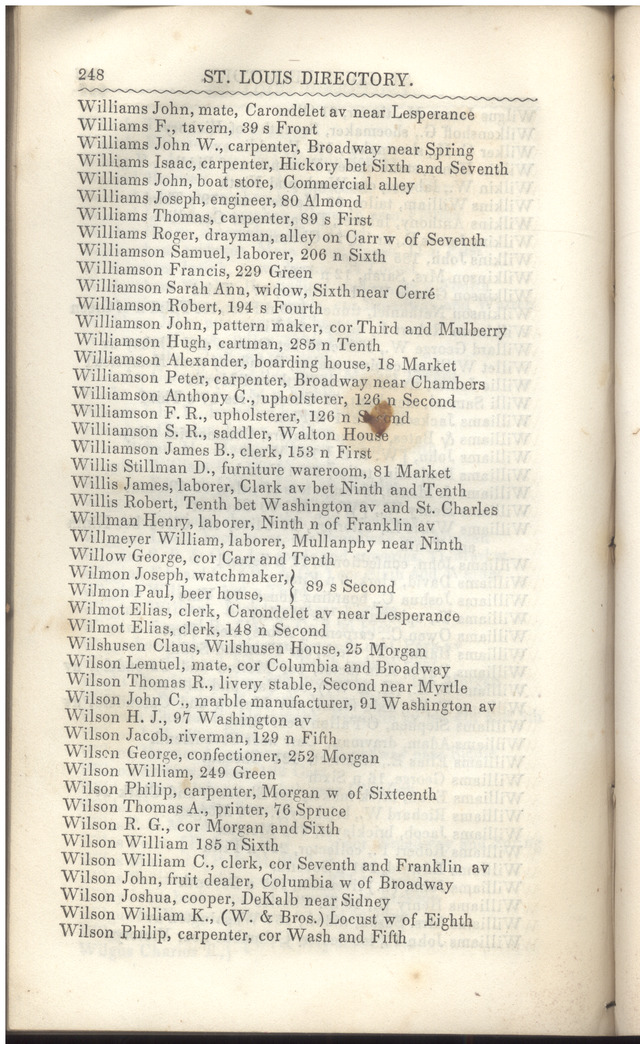 248 ST. LOUIS DIRECTORY.
Williams John, mate, Carondelet av near Lesperance
Williams F., tavern, 39 s Front
Williams John W., carpenter, Broadway near Spring
Williams Isaac, carpenter, Hickory bet Sixth and Seventh
Williams John, boat store, Commercial alley
Williams Joseph, engineer, 80 Almond
Williams Thomas, carpenter, 89 s First
Williams Roger, drayman, alley on Carr w of Seventh
Williamson Samuel, laborer, 206 n Sixth
Williamson Francis, 229 Green
Williamson Sarah Ann, widow, Sixth near Cerré
Williamson Robert, 194 s Fourth
Williamson John, pattern maker, cor Third and Mulberry
Williamson Hugh, cartman, 285 n Tenth
Williamson Alexander, boarding house, 18 Market
Williamson Peter, carpenter, Broadway near Chambers
Williamson Anthony C., upholsterer, 126 n Second
Williamson F. R., upholsterer, 126 n Second
Williamson S. R., saddler, Walton House
Williamson James B., clerk, 153 n First
Willis Stillman D., furniture wareroom, 81 Market
Willis James, laborer, Clark av bet Ninth and Tenth
Willis Robert, Tenth bet Washington av and St. Charles
Willman Henry, laborer, Ninth n of Franklin av
Willmeyer William, laborer, Mullanphy near Ninth
Willow George, cor Carr and Tenth
Wilmon Joseph, watchmaker, } 89 s Second
Wilmon Paul, beer house,
Wilmot Elias, clerk, Carondelet av near Lesperance
Wilmot Elias, clerk, 148 n Second
Wilshusen Claus, Wilshusen House, 25 Morgan
Wilson Lemuel, mate, cor Columbia and Broadway
Wilson Thomas R., livery stable, Second near Myrtle
Wilson John C., marble manufacturer, 91 Washington av
Wilson H. J., 97 Washington av
Wilson Jacob, riverman, 129 n Fifth
Wilson George, confectioner, 252 Morgan
Wilson William, 249 Green
Wilson Philip, carpenter, Morgan w of Sixteenth
Wilson Thomas A., printer, 76 Spruce
Wilson R. G., cor Morgan and Sixth
Wilson William 185 n Sixth
Wilson William C., clerk, cor Seventh and Franklin av
Wilson John, fruit dealer, Columbia w of Broadway
Wilson Joshua, cooper, DeKalb near Sidney
Wilson William K., (W. & Bros.) Locust w of Eighth
Wilson Philip, carpenter, cor Wash and Fifth